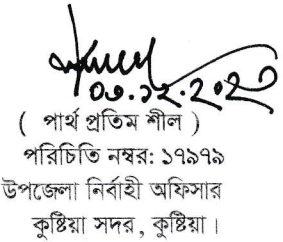 ০৩.১২.২০২৩
( পার্থ প্রতিম শীল )
পরিচিতি নম্বর: ১৭৯৭৯
উপজেলা নির্বাহী অফিসার
কুষ্টিয়া সদর, কুষ্টিয়া।